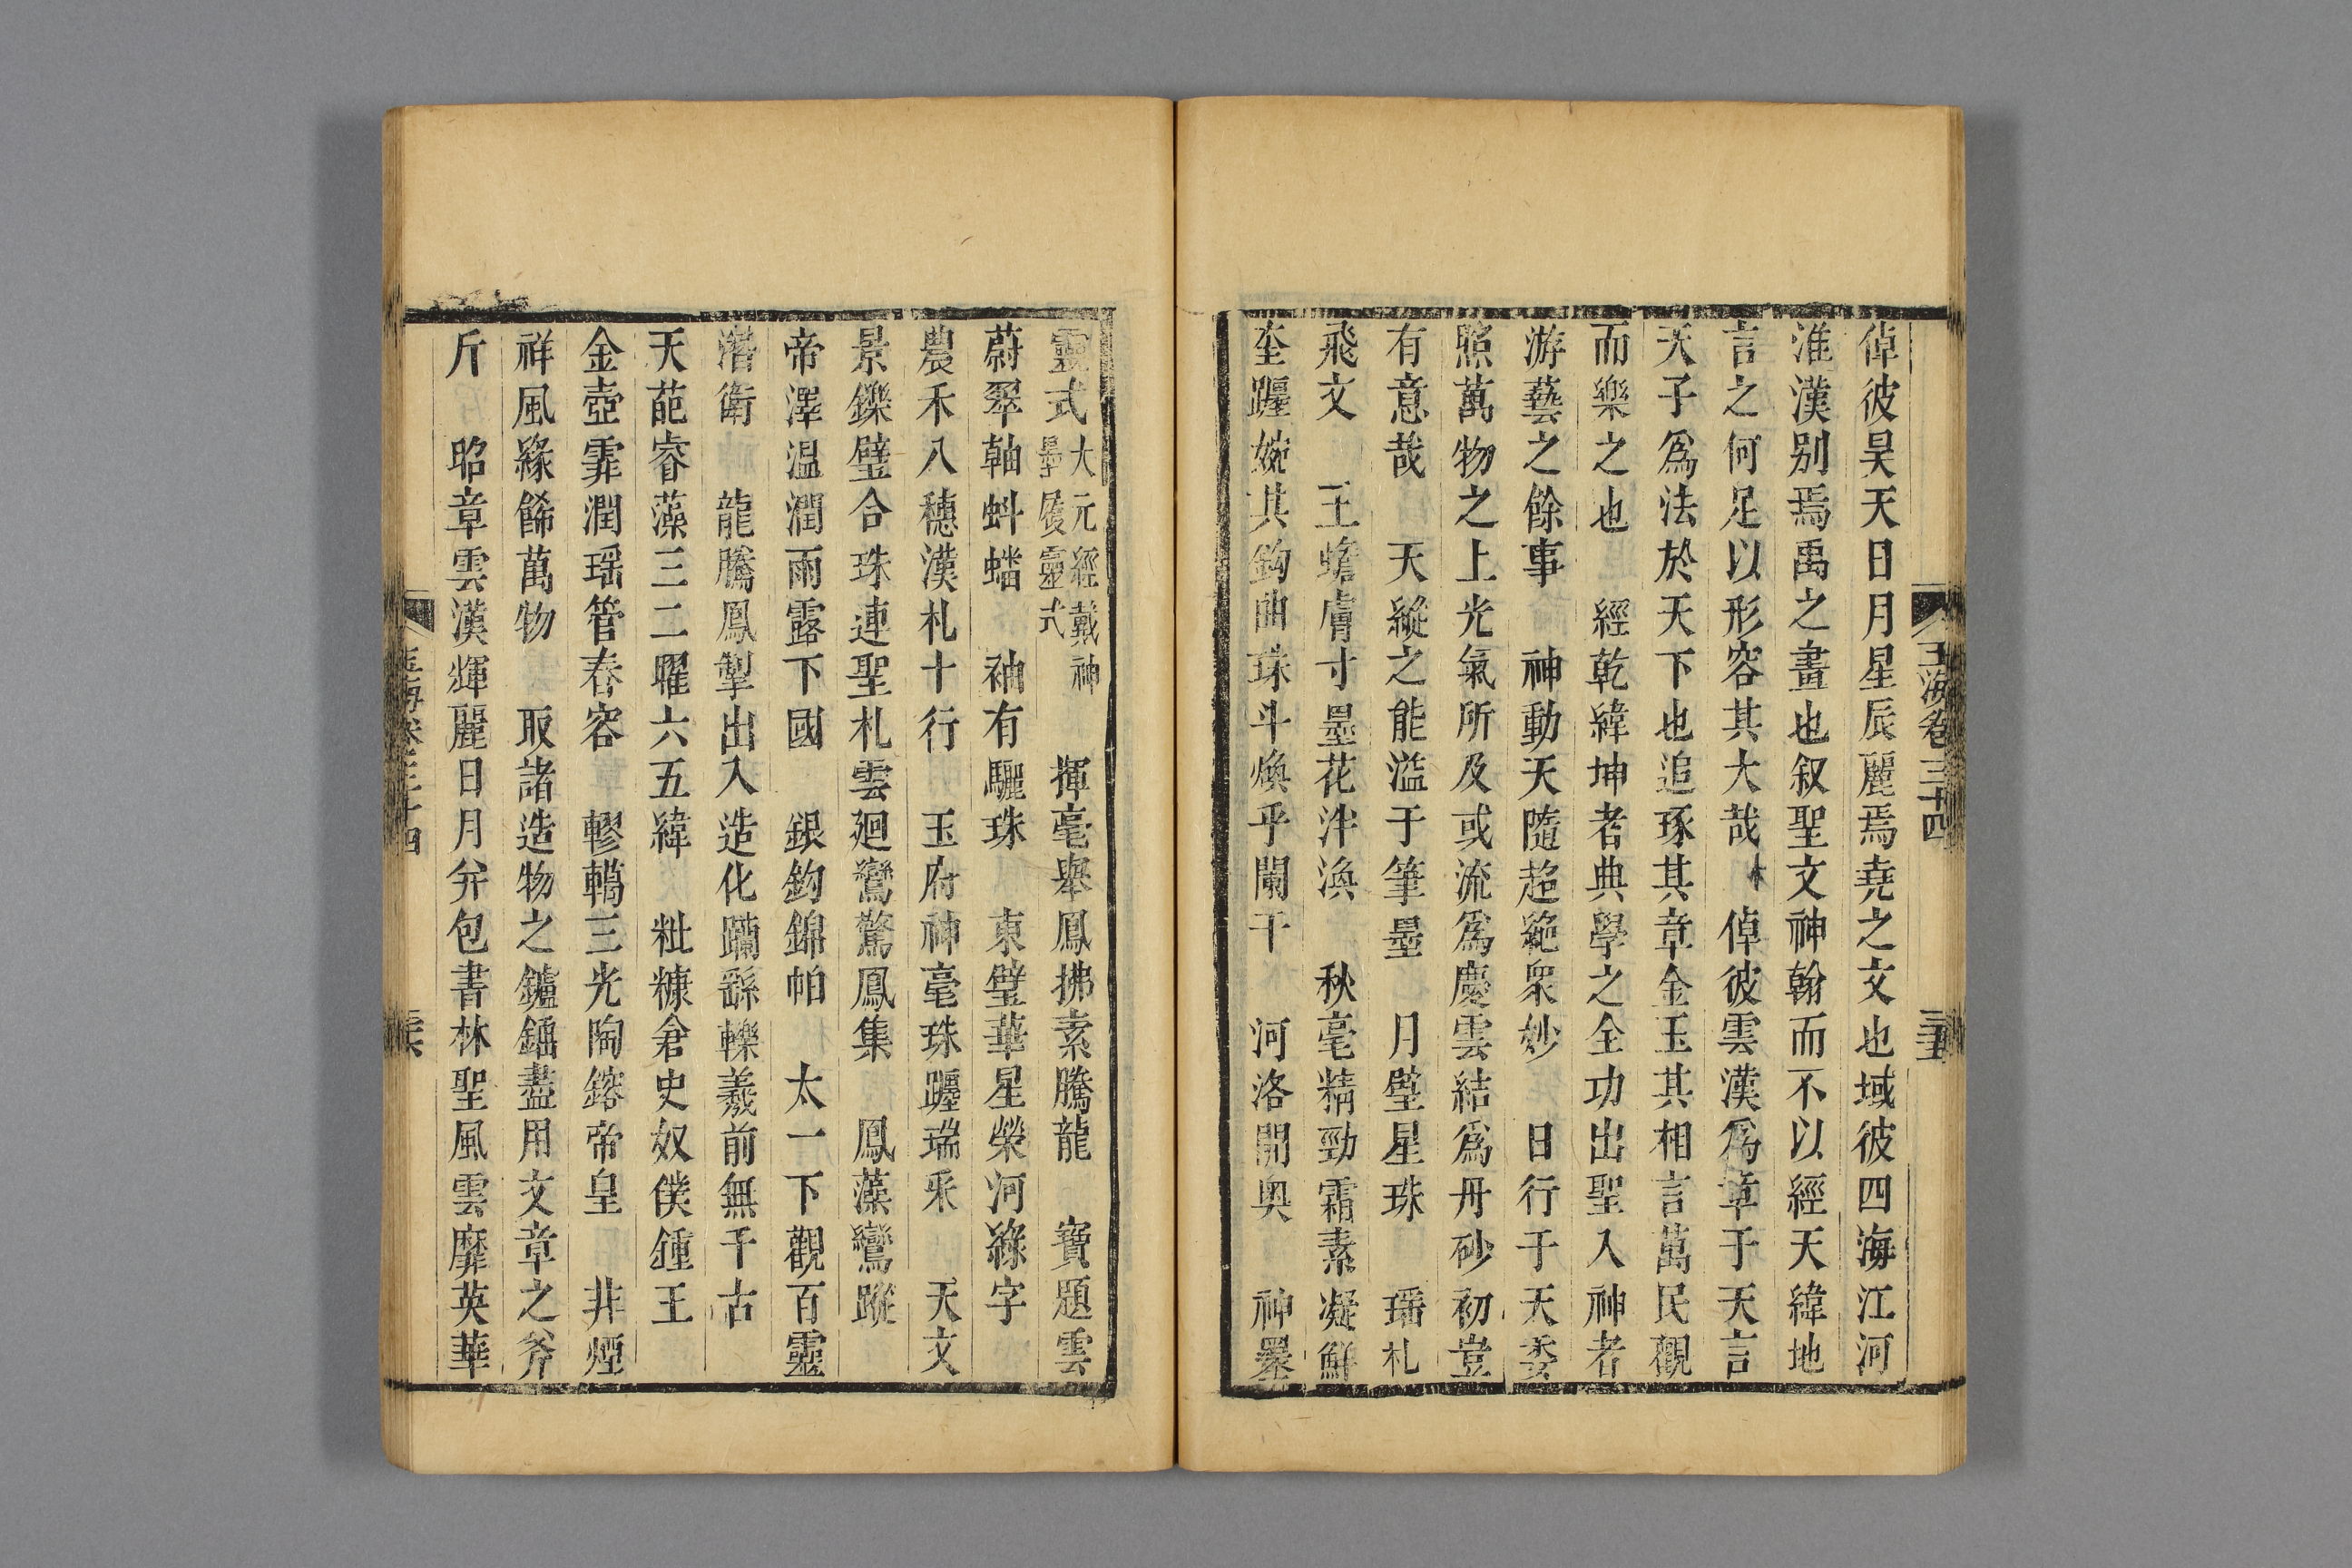 玉海卷三十四
三十五
倬彼昊天日月星辰麗焉堯之文也域彼四海江河
淮漢别焉禹之畫也叙聖文神翰而不以經天緯地
言之何足以形容其大哉 倬彼雲漢爲章于天言
天子爲法於天下也追琢其章金玉其相言萬民觀
而樂之也 經乾緯坤者典學之全功出聖入神者
游藝之餘事 神動天隨超絶衆妙 日行于天委
照萬物之上光氣所及或流爲慶雲結爲丹砂初豈
有意哉 天縱之能溢于筆墨 月璧星珠 瑶札
飛文 玉蟾膚寸墨花泮渙 秋毫精勁霜素凝鮮
奎躔婉其鈎曲珠斗煥乎闌干 河洛開奥 神墨
靈式大元經戴神墨履靈式 揮毫舉鳳拂素騰龍 寶題雲
蔚翠軸蚪蟠 袖有驪珠 東璧華星榮河綠字
農禾八穗漢札十行 玉府神毫珠躔瑞采 天文
景鑠璧合珠連聖札雲廻鸞驚鳳集 鳳藻鸞蹤
帝澤温潤雨露下國 銀鈎錦帕 太一下觀百靈
潛衛 龍騰鳳掣出入造化躪繇轢羲前無千古
天葩睿藻三二曜六五緯 粃糠倉史奴僕鍾王
金壺霏潤瑶管春容 轇轕三光陶鎔帝皇 非煙
祥風緣餙萬物 取諸造物之鑪錘盡用文章之斧
斤 昭章雲漢輝麗日月弁包書林聖風雲靡英華
玉海卷三十四
三十六